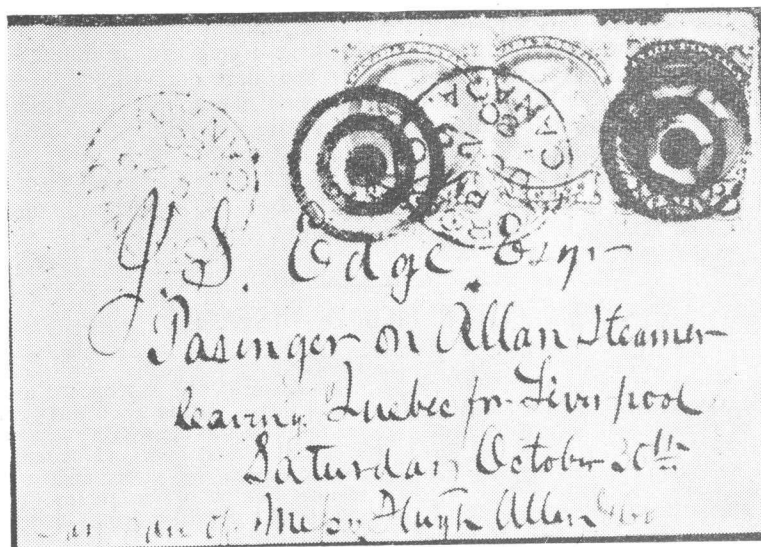 CANADA
J. S. Edge. Esqr
Pasinger on Allan Steamer
leaving Quebec for Liverpool
Saturday October 20th
care of Messrs Hugh Allan &Co